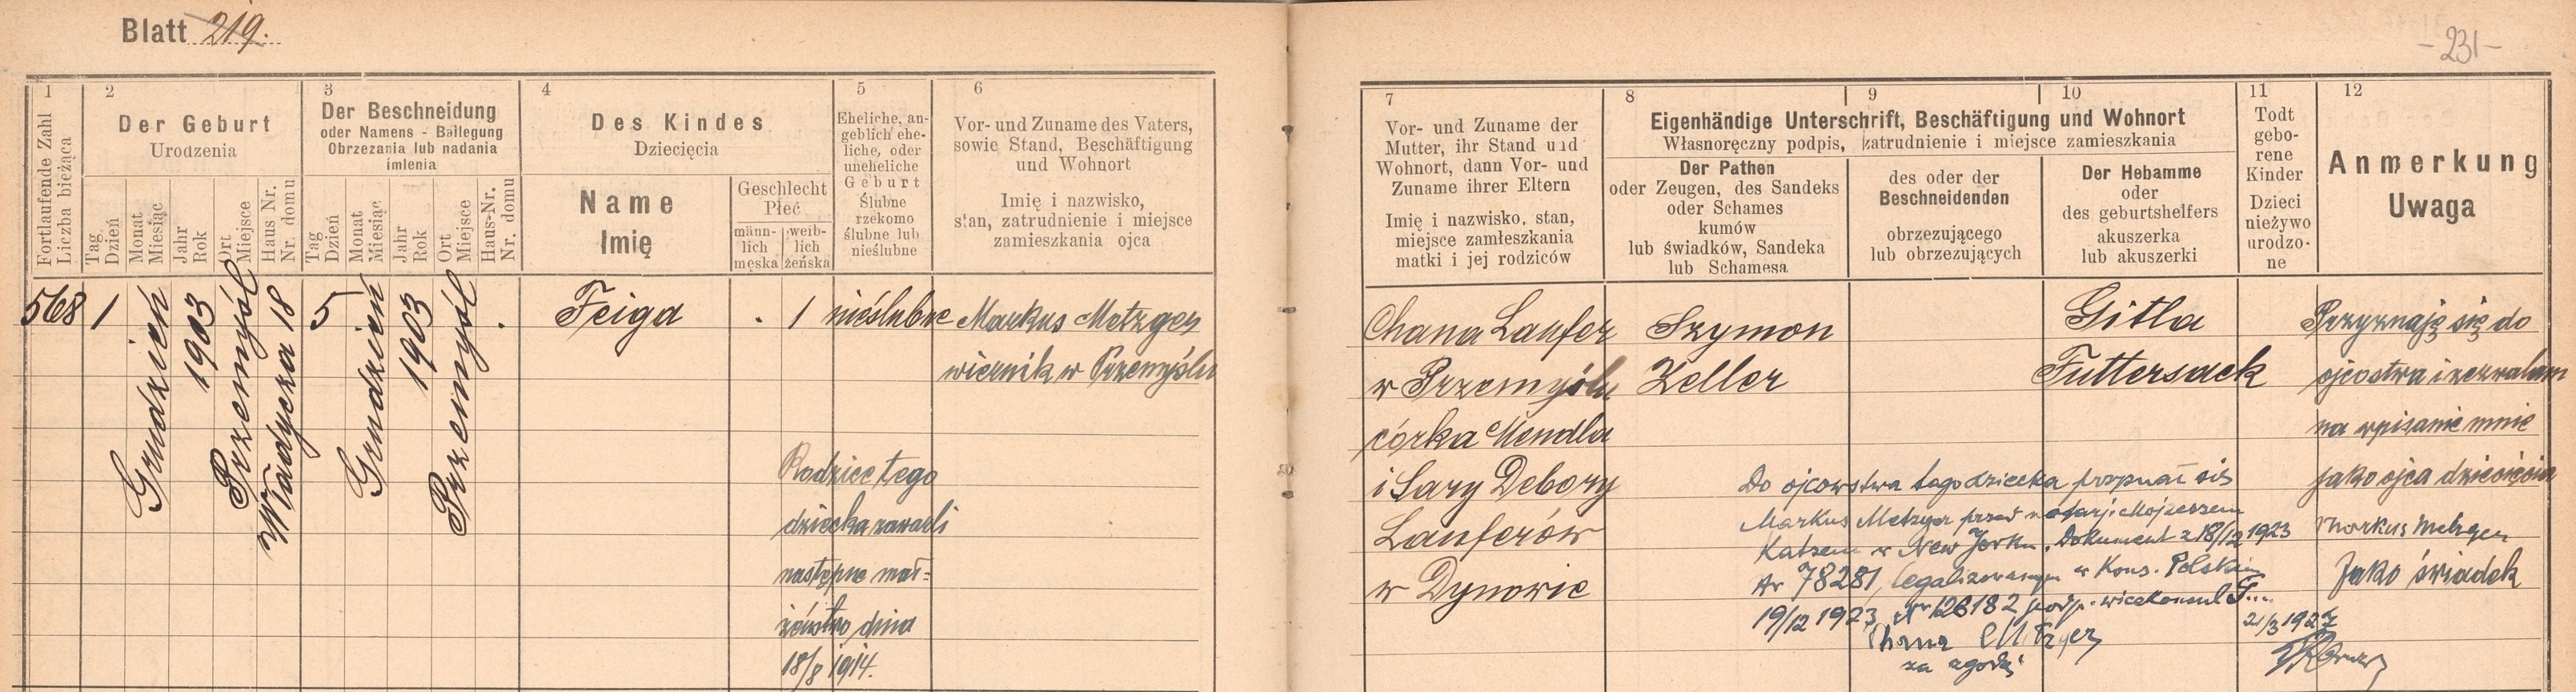 Blatt 219.
- 231 -
1
Fortlaufende Zahl
Liczba bieżąca
2
Der Geburt
Urodzenia
Tag
Dzień
Monat
Miesiąc
Jahr
Rok
Ort
Miejsce
Haus Nr.
Nr. domu
3
Der Beschneidung
oder Namens - Beilegung
Obrzezania lub nadania
imlenia
Tag
Dzień
Monat
Miesiąc
Jahr
Rok
Ort
Miejsce
Haus-Nr.
Nr. domu
4
Des Kindes
Dziecięcia
Name
Imię
Geschlecht
Płeć
männ-
lich
męska
weib-
lich
żeńska
5
Eheliche, an-
geblich ehe-
liche, oder
uneheliche
Geburt
Ślubne
rzekomo
ślubne lub
nieślubne
6
Vor- und Zuname des Vaters,
sowie Stand, Beschäftigung
und Wohnort
Imię i nazwisko,
stan, zatrudnienie i miejsce
zamieszkania ojca
7
Vor- und Zuname der
Mutter, ihr Stand und
Wohnort, dann Vor- und
Zuname ihrer Eltern
Imię i nazwisko, stan,
miejsce zamieszkania
matki i jej rodziców
8
9
10
Eigenhändige Unterschrift, Beschäftigung und Wohnort
Własnoręczny podpis, zatrudnienie i miejsce zamieszkania
Der Pathen
oder Zeugen, des Sandeks
oder Schames
kumów
lub świadków, Sandeka
lub Schamesa
des oder der
Beschneidenden
obrzezującego
lub obrzezujących
Der Hebamme
oder
des geburtshelfers
akuszerka
lub akuszerki
11
Todt
gebo-
rene
Kinder
Dzieci
nieżywo
urodzo-
ne
12
Anmerkung
Uwaga
568
1
Grudzień
1903
Przemyśl
Władycza 18
5
Grudzień
1903
Przemyśl
.
Feiga
. 1
nieślubne
Markus Metzger
wiernik w Przemyślu
Rodzice tego
dziecka zawarli
następne mał=
żeństwo dnia
18/8 1914.
Chana Laufer
w Przemyślu
córka Mendla
i Sary Debory
Lauferów
w Dynowie
Szymon
Zeller
Gitla
Futtersack
Do ojcowstwa tego dziecka przyznał się
Markus Metzger przed notarj. Mojżeszem
Katzem w New Jorku. Dokument z 18/12 1923
Nr 78281, legalizowanym w Kons. Polskim
19/12 1923, Nr 126182 podp. wicekonsul
21/3 1927
Chana Metzger
za zgodą
Przyznaję się do
ojcostwa i zezwalam
na wpisanie mnie
jako ojca dziecięcia
Markus Metzger
Jako świadek